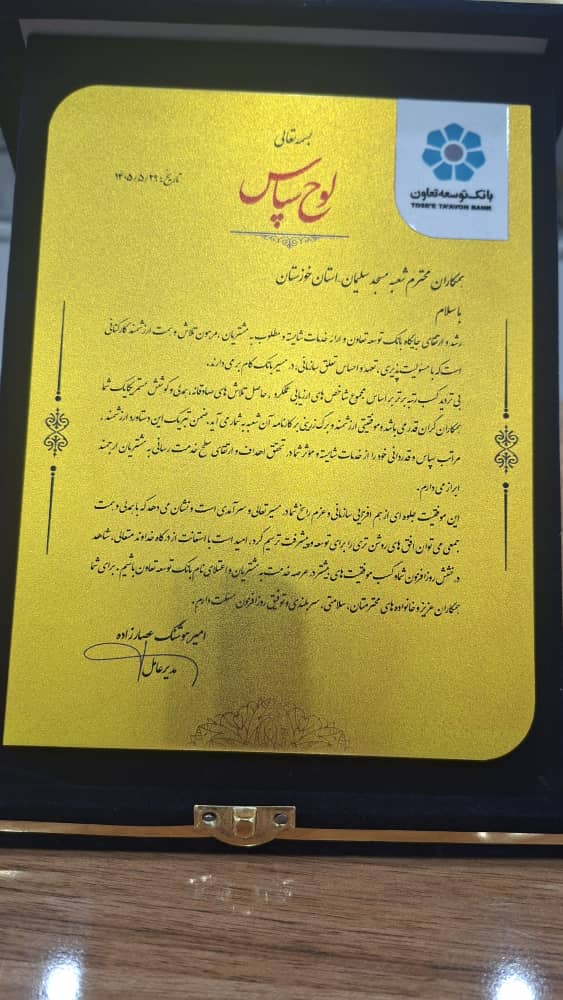 بسمه تعالی
تاریخ: ۱۴۰۵/۵/۲۹
لوح سپاس
بانک توسعه تعاون
TOSE'E TA'AVON BANK
همکاران محترم شعبه مسجد سلیمان، استان خوزستان
با سلام
رشد و ارتقای جایگاه بانک توسعه تعاون و ارائه خدمات شایسته و مطلوب به مشتریان، مرهون تلاش و همت ارزشمند کارکنانی
است که با مسئولیت پذیری، تعهد و احساس تعلق سازمانی، در مسیر بانک گام بر می دارند.
بی تردید کسب رتبه برتر بر اساس مجموع شاخص های ارزیابی عملکرد، حاصل تلاش های صادقانه، همدلی و کوشش مستمر یکایک شما
همکاران گران قدر می باشد و موفقیتی ارزشمند و برگ زرینی بر کارنامه آن شعبه به شمار می آید. ضمن تبریک این دستاورد ارزشمند،
مراتب سپاس و قدردانی خود را از خدمات شایسته و مؤثر شما در تحقق اهداف و ارتقای سطح خدمت رسانی به مشتریان ارجمند
ابراز می دارم.
این موفقیت جلوه ای از هم افزایی سازمانی و عزم راسخ شما در مسیر تعالی و سرآمدی است و نشان می دهد که با همدلی و همت
جمعی می توان افق های روشن تری را برای توسعه و پیشرفت ترسیم کرد. امید است با استعانت از درگاه خداوند متعالی، شاهد
درخشش روزافزون شما و کسب موفقیت های بیشتر در عرصه خدمت به مشتریان و اعتلای نام بانک توسعه تعاون باشیم. برای شما
همکاران عزیز و خانواده های محترمتان، سلامتی، سربلندی و توفیق روزافزون مسئلت دارم.
امیر هوشنگ عصارزاده
مدیر عامل